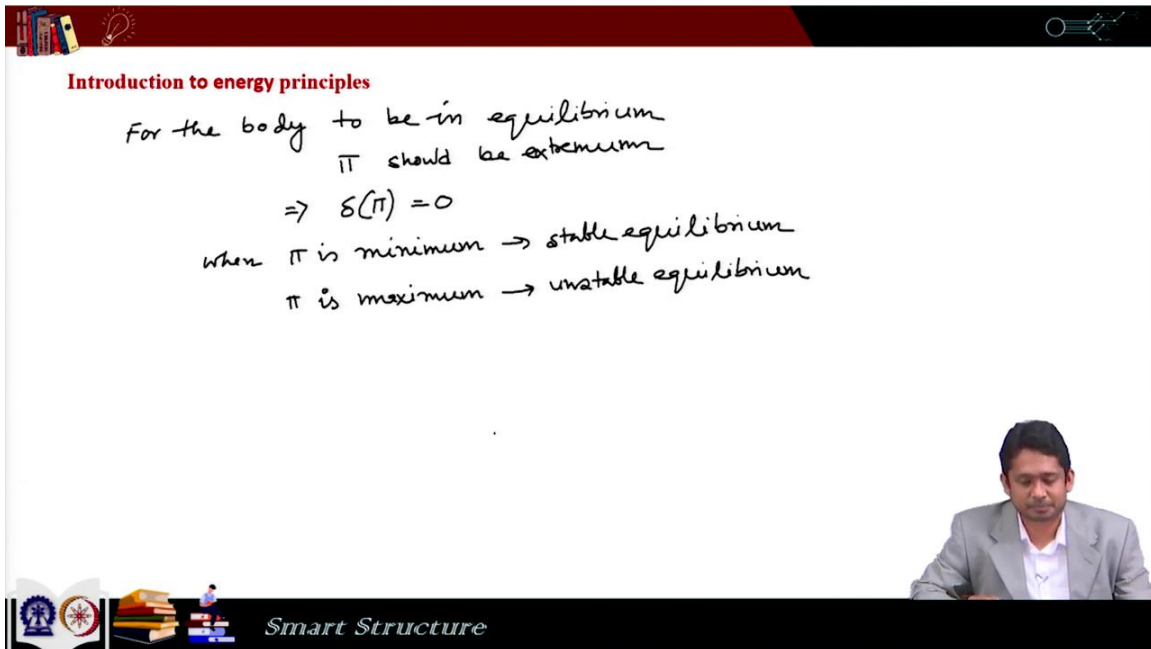 Introduction to energy principles
For the body to be in equilibrium
π should be extremum
⇒ δ(π) = 0
when π is minimum → stable equilibrium
π is maximum → unstable equilibrium
Smart Structure